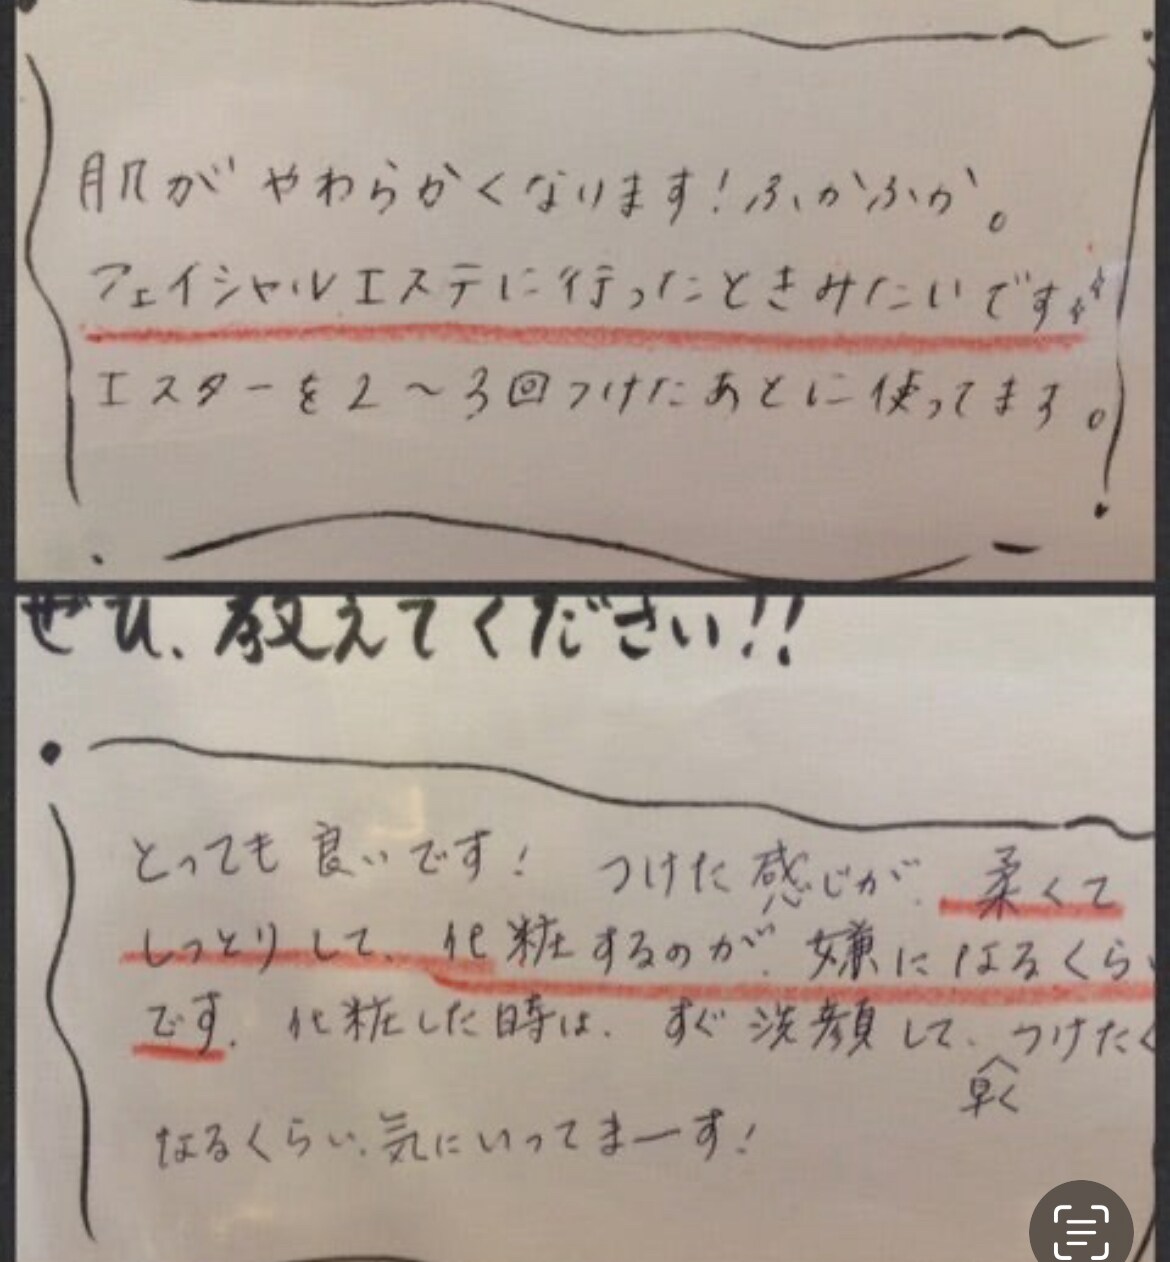 肌がやわらかくなります!ふかふか。
フェイシャルエステに行ったときみたいです
エスターを2〜3回つけたあとに使ってます。
ぜひ、教えてください!!
とっても良いです! つけた感じが、柔くて
しっとりして、化粧するのが、嫌になるくらい
です。化粧した時は、すぐ洗顔して、つけたく
早く
なるくらい、気にいってまーす!